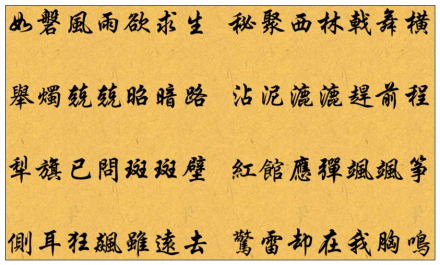 如磐風雨欲求生 秘聚西林戟舞橫
舉燭兢兢昭暗路 沾泥漉漉趕前程
犁旗已問斑斑壁 紅館應彈颯颯箏
側耳狂飆雖遠去 驚雷却在我胸鳴